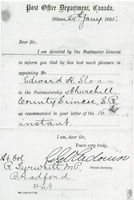 Post Office Department, Canada.
Ottawa, 24th Jany 1885.
Dear Sir,
I am directed by the Postmaster General
to inform you that he has had much pleasure in
appointing Mr
Edward H. Sloan
to the Postmastership of Churchill,
County Simcoe, S.R.
as recommended in your letter of the 16
instant
Yours truly,
Private Secretary.
Lt Col
Tyrwhitt M.P.
Bradford
Ont